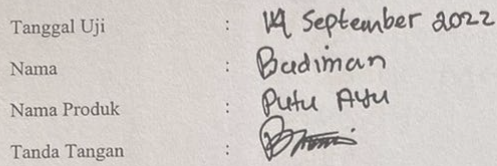 Tanggal Uji : 14 September 2022
Nama : Budiman
Nama Produk : Putu Ayu
Tanda Tangan :